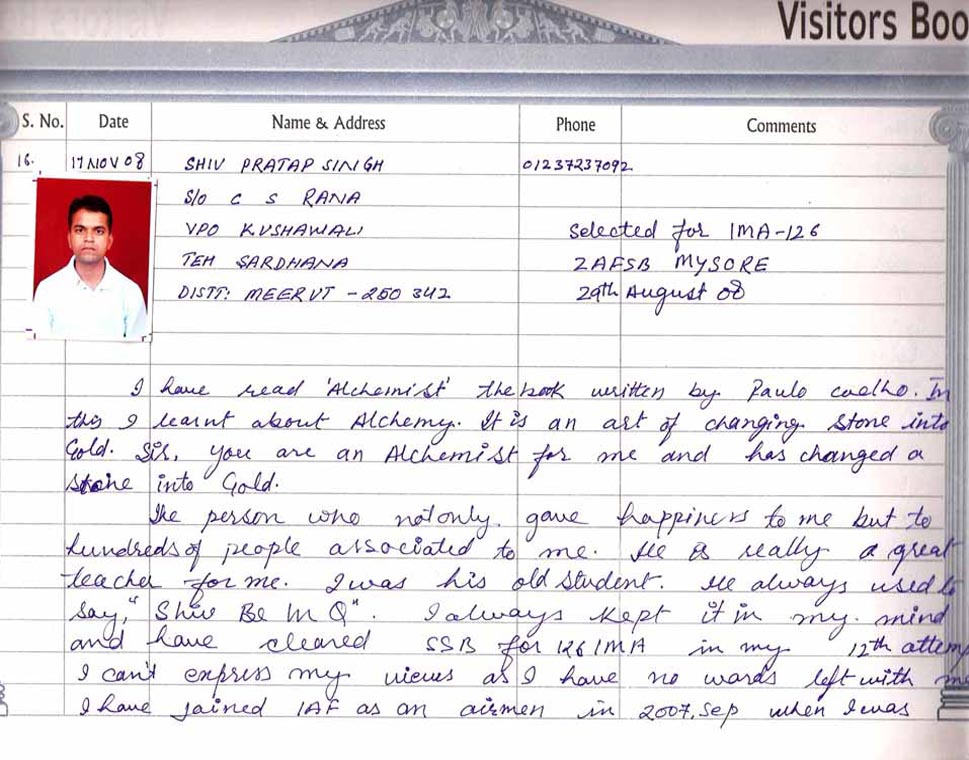 Visitors Boo
S. No. Date Name & Address Phone Comments
16. 17 NOV 08 SHIV PRATAP SINGH 01237237092
S/o C S RANA
VPO KUSHAWALI Selected for IMA-126
TEH SARDHANA 2AFSB MYSORE
DISTT: MEERUT - 250 342 29th August 08
I have read 'Alchemist' the book written by Paulo coelho. In
this I learnt about Alchemy. It is an art of changing stone into
Gold. Sir, you are an Alchemist for me and has changed a
stone into Gold.
The person who not only gave happiness to me but to
hundreds of people associated to me. He is really a great
teacher for me. I was his old student. He always used to
say, "Shiv Be In Q". I always kept it in my mind
and have cleared SSB for 126 IMA in my 12th attem
I can't express my views as I have no words left with me
I have joined IAF as an airmen in 2007, Sep when I was